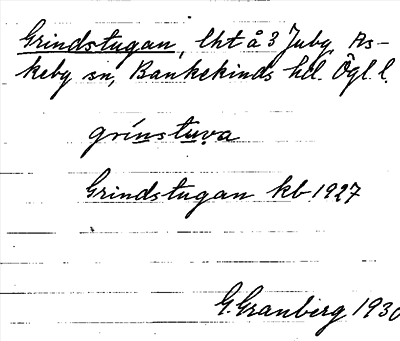 Grindstugan, lht å 3 Juby, As-
keby sn, Bankekinds hd. Ögl. l.
grínstuva
Grindstugan kb 1927
G. Granberg 1930